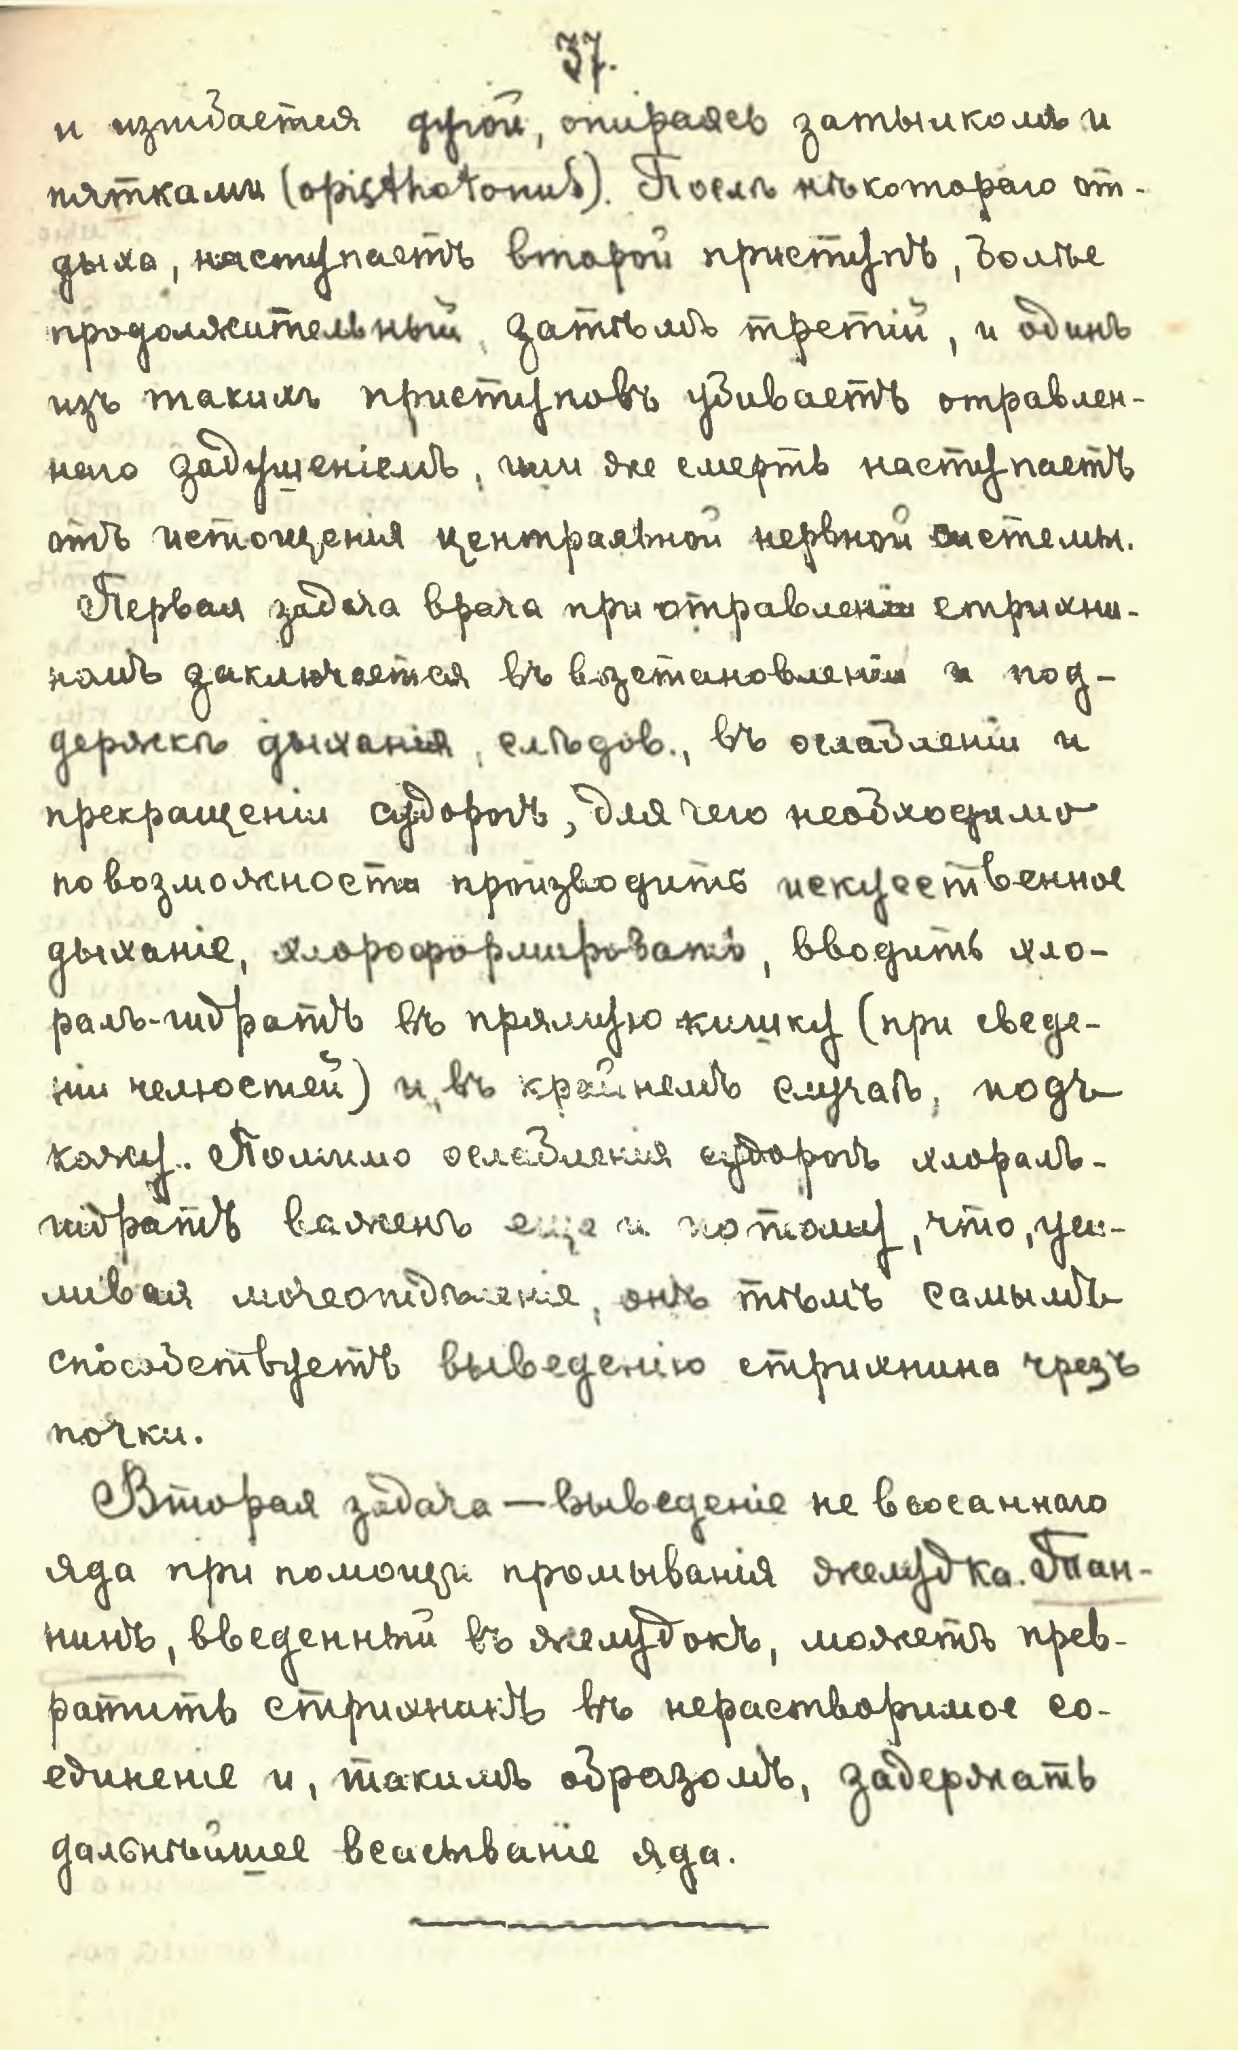 37.
и изгибается дугой, опираясь затылкомъ и
пятками (opisthotonus). Послѣ нѣкотораго от-
дыха, наступаетъ второй приступъ, болѣе
продолжительный, затѣмъ третій, и одинъ
изъ такихъ приступовъ убиваетъ отравлен-
наго задушеніемъ, или же смерть наступаетъ
отъ истощенія центральной нервной системы.
Первая задача врача при отравленіи стрихни-
номъ заключается въ возстановленіи и под-
держкѣ дыханія, слѣдов., въ ослабленіи и
прекращеніи судорогъ, для чего необходимо
по возможности производить искусственное
дыханіе, хлороформировать, вводить хло-
ралъ-гидратъ въ прямую кишку (при сведе-
ніи челюстей) и, въ крайнемъ случаѣ, подъ
кожу. Помимо ослабленія судорогъ хлоралъ-
гидратъ важенъ еще и потому, что, уси-
ливая мочеотдѣленіе, онъ тѣмъ самымъ
способствуетъ выведенію стрихнина чрезъ
почки.
Вторая задача — выведеніе не всосаннаго
яда при помощи промыванія желудка. Тан-
нинъ, введенный въ желудокъ, можетъ прев-
ратить стрихнинъ въ нерастворимое со-
единеніе и, такимъ образомъ, задержать
дальнѣйшее всасываніе яда.